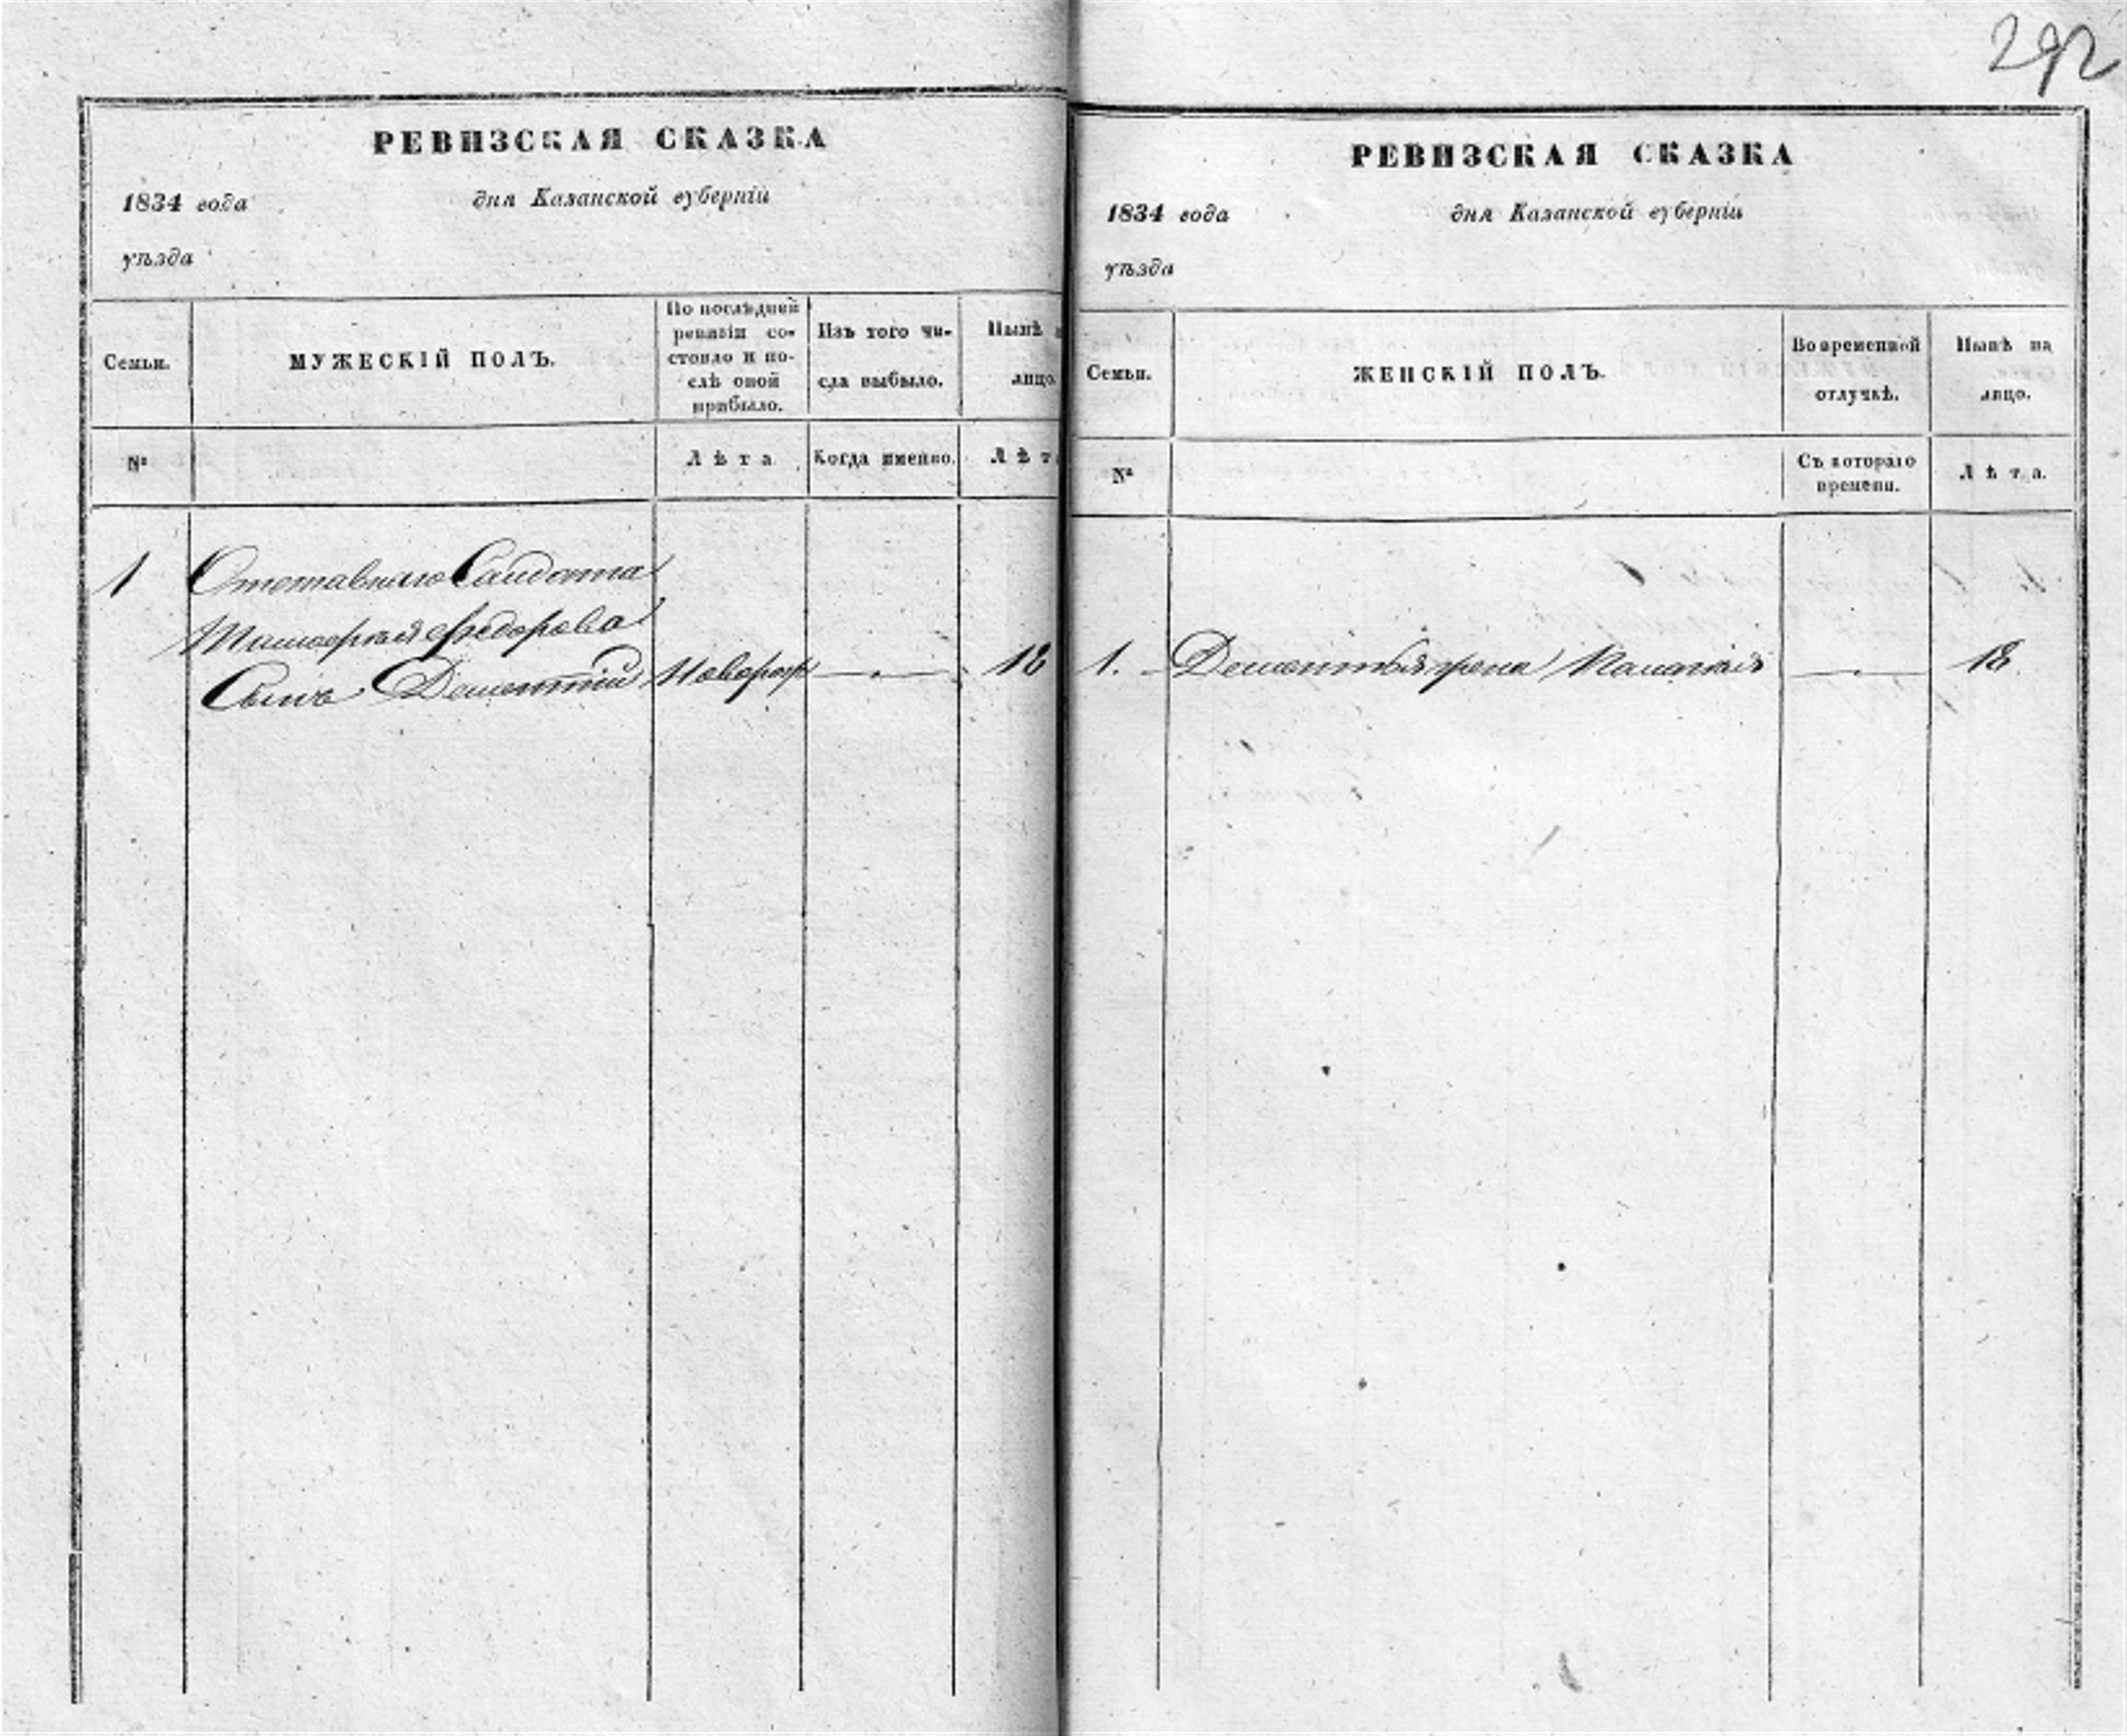 292
РЕВИЗСКАЯ СКАЗКА
1834 года дня Казанской губерніи
уѣзда
Семьи.
МУЖЕСКІЙ ПОЛЪ.
По послѣдней
ревизіи со-
стояло и по-
слѣ оной
прибыло.
Изъ того чи-
сла выбыло.
Нынѣ
лицо.
№
Лѣта
Когда именно.
Лѣт
1 Отставнаго Салдата
Федорова
Сынъ Дементій Новорож 18
РЕВИЗСКАЯ СКАЗКА
1834 года дня Казанской губерніи
уѣзда
Семьи.
ЖЕНСКІЙ ПОЛЪ.
Во временной
отлучкѣ.
Нынѣ на
лицо.
№
Съ котораго
времени.
Лѣта.
1. Дементья жена 18